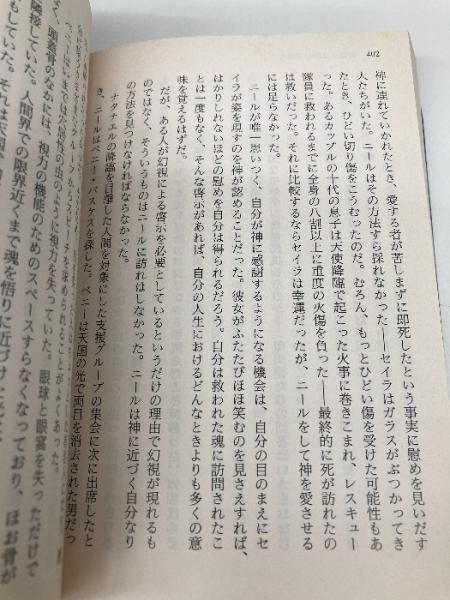 402
神に連れていかれたとき、愛する者が苦しまずに即死したという事実に慰めを見いだす
人たちがいた。ニールはその方法すら採れなかった——セイラはガラスがぶつかってき
たとき、ひどい切り傷をこうむったのだ。むろん、もっとひどい傷を受けた可能性もあ
った。あるカップルの十代の息子は天使降臨で起こった火事に巻きこまれ、レスキュー
隊員に救われるまでに全身の八割以上に重度の火傷を負った——最終的に死が訪れたの
は救いだった。それに比較するならセイラは幸運だったが、ニールをして神を愛させる
には足らなかった。
ニールが唯一思いつく、自分が神に感謝するようになる機会は、自分の目のまえにセ
イラが姿を現すのを神が認めることだった。彼女がふたたびほほ笑むのを見さえすれば、
はかりしれないほどの慰めを自分は得られるだろう。自分は救われた魂に訪問されたこ
とは一度もなく、そんな啓示があれば、自分の人生におけるどんなときよりも多くの意
味を覚えるはずだ。
だが、ある人が幻視による啓示を必要としているというだけの理由で幻視が現れるも
のではなく、そういうものはニールに訪れはしなかった。ニールは神に近づく自分なり
の方法を見つけなければならなかった。
ナタナエルの降臨を目撃した人間を対象にした支援グループの集会に次に出席したと
き、ニールはベニー・バスケスを探した。ベニーは天国の光で両目を消去された男だっ
頭蓋骨のなかには、視力の機能のためのスペースすらなくなっており、ほお骨が
隣接していた。人間界での限界近くまで魂を悟りに近づけた